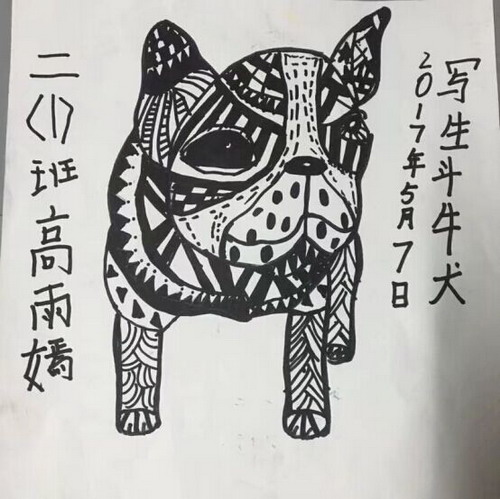 写生斗牛犬
2017年5月7日
二〈1〉班高雨嫣